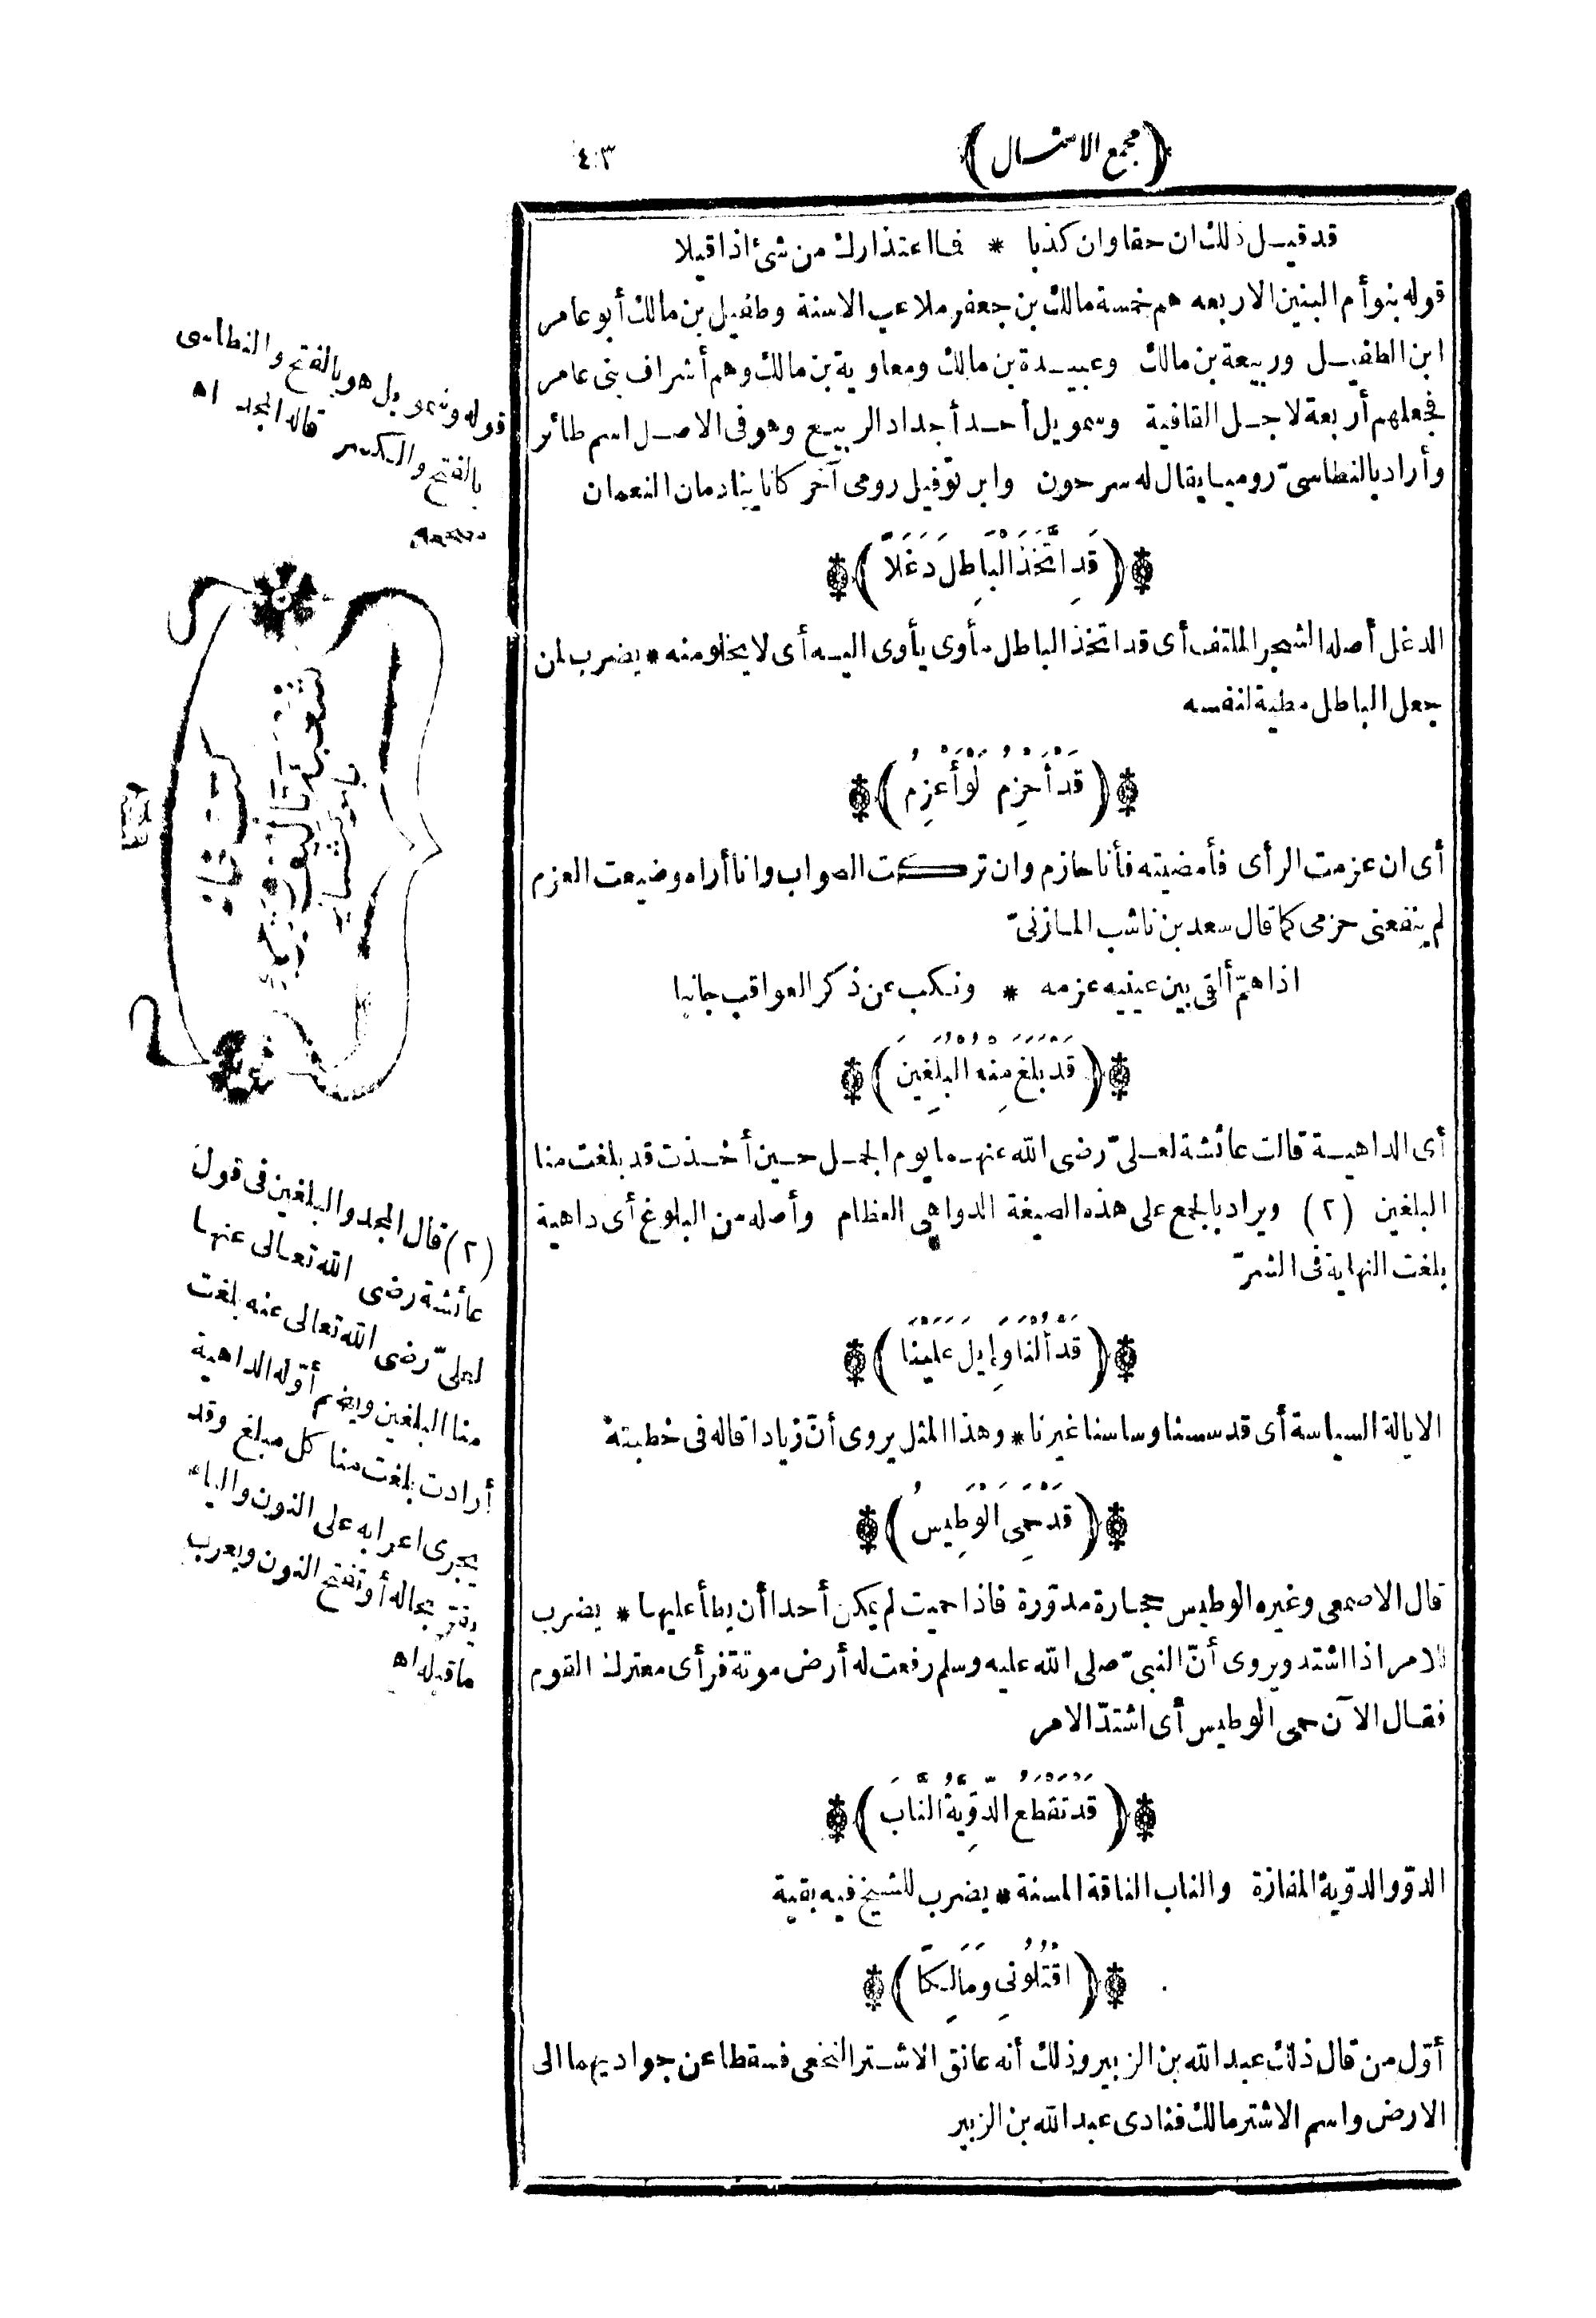 ﴿مجمع الامثال﴾
٤٠٣
قد قيل ذلك ان حقا وان كذبا * فما اعتذارك من شئ اذا قيلا
قوله بنو أم البنين الاربعه هم خمسة مالك بن جعفر ملاعب الاسنة وطفيل بن مالك أبو عامر
ابن الطفيل وربيعة بن مالك وعبيدة بن مالك ومعاوية بن مالك وهم أشراف بنى عامر
فجعلهم أربعة لاجل القافية وسمويل أحد أجداد الربيع وهو فى الاصل اسم طائر
وأراد بالنطاسىّ روميا يقال له سرحون وابن توفيل رومى آخر كانا ينادمان النعمان
﴿قَدِ اتَّخَذَ الْبَاطِلَ دَغَلًا﴾
الدغل أصله الشجر الملتف أى قد اتخذ الباطل مأوى يأوى اليه أى لا يخلو منه * يضرب لمن
جعل الباطل مطية لنفسه
﴿قَدْ أَحْزِمُ لَوْ أَعْزِمُ﴾
أى ان عزمت الرأى فأمضيته فأنا حازم وان تركت الصواب وانا أراه وضيعت العزم
لم ينفعنى حزمى كما قال سعد بن ناشب المازنىّ
اذا همّ ألقى بين عينيه عزمه * ونكب عن ذكر العواقب جانبا
﴿قَدْ بَلَغَ مِنْهُ الْبُلَغِينَ﴾
أى الداهية قالت عائشة لعلىّ رضى الله عنهما يوم الجمل حين أخذت قد بلغت منا
البلغين (٢) ويراد بالجمع على هذه الصيغة الدواهى العظام وأصله من البلوغ أى داهية
بلغت النهاية فى الشرّ
﴿قَدْ أُلْنَا وَإِيلَ عَلَيْنَا﴾
الايالة السياسة أى قد سسنا وساسنا غيرنا * وهذا المثل يروى أنّ زيادا قاله فى خطبته
﴿قَدْ حَمِىَ الْوَطِيسُ﴾
قال الاصمعى وغيره الوطيس حجارة مدوّرة فاذا حميت لم يمكن أحدا أن يطأ عليها * يضرب
للامر اذا اشتد ويروى أنّ النبىّ صلى الله عليه وسلم رفعت له أرض موتة فرأى معترك القوم
فقال الآن حمى الوطيس أى اشتدّ الامر
﴿قَدْ تَقْطَعُ الدَّوِّيَّةُ النَّابَ﴾
الدوّ والدوّية المفازة والناب الناقة المسنة * يضرب للشيخ فيه بقية
﴿اقْتُلُونِى وَمَالِكًا﴾
أوّل من قال ذلك عبد الله بن الزبير وذلك أنه عانق الاشتر النخعى فسقطا عن جواديهما الى
الارض واسم الاشتر مالك فنادى عبد الله بن الزبير
قوله وسمويل هو بالفتح والنطاسى
بالفتح والكسر قاله المجد اه
(٢) قال المجد والبلغين فى قول
عائشة رضى الله تعالى عنها
لعلىّ رضى الله تعالى عنه بلغت
منا البلغين ويضم أوّله الداهية
أرادت بلغت منا كل مبلغ وقد
يجرى اعرابه على النون والياء
يقرّ بحاله أو تفتح النون ويعرب
ما قبله اه